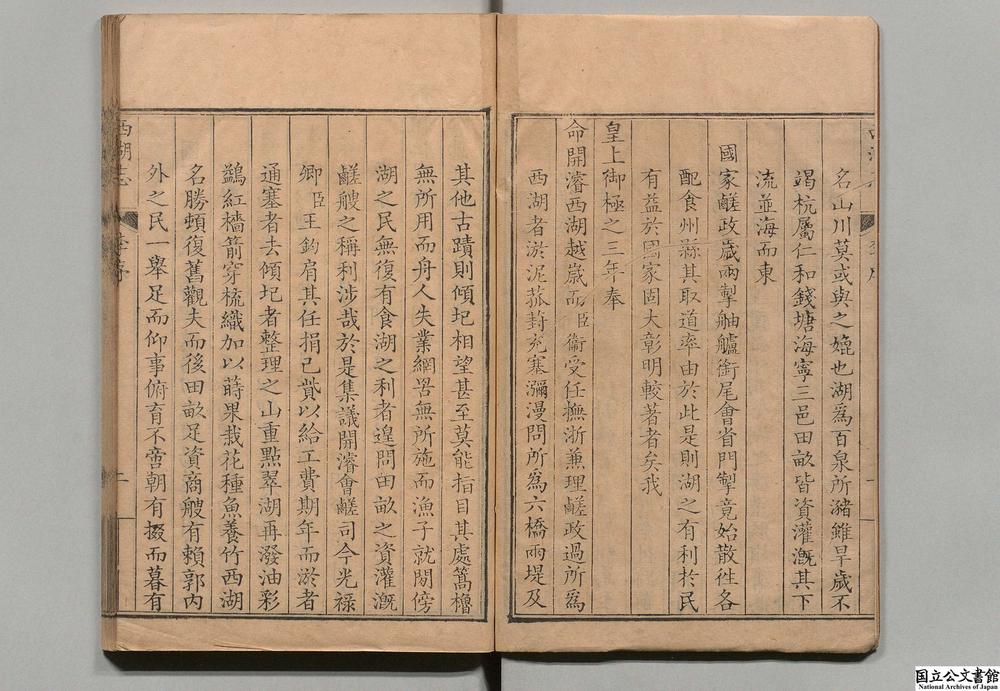 名山川莫或與之媲也湖爲百泉所瀦雖旱歲不
竭杭屬仁和錢塘海寧三邑田畝皆資灌漑其下
流並海而東
國家鹺政歲兩掣舳艫銜尾會省門掣竟始散徃各
配食州縣其取道率由於此是則湖之有利於民
有益於國家固大彰明較著者矣我
皇上御極之三年奉
命開濬西湖越歲而臣衞受任撫浙兼理鹺政過所爲
西湖者淤泥菰葑充塞瀰漫問所爲六橋兩堤及
西湖志
二
其他古蹟則傾圮相望甚至莫能指目其處篙櫓
無所用而舟人失業網罟無所施而漁子就閒傍
湖之民無復有食湖之利者遑問田畝之資灌漑
鹺艘之稱利涉哉於是集議開濬會鹺司今光祿
卿臣王鈞肩其任捐己貲以給工費期年而淤者
通塞者去傾圮者整理之山重點翠湖再潑油彩
鷁紅檣箭穿梳織加以蒔果栽花種魚養竹西湖
名勝頓復舊觀夫而後田畝足資商艘有賴郭內
外之民一舉足而仰事俯育不啻朝有掇而暮有
国立公文書館
National Archives of Japan